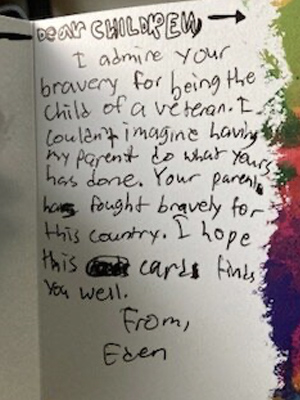 Dear CHILDREN,
I admire your
bravery for being the
child of a veteran. I
couldn't imagine having
my parent do what yours
has done. Your parent
has fought bravely for
this country. I hope
this card finds
you well.
From,
Eden